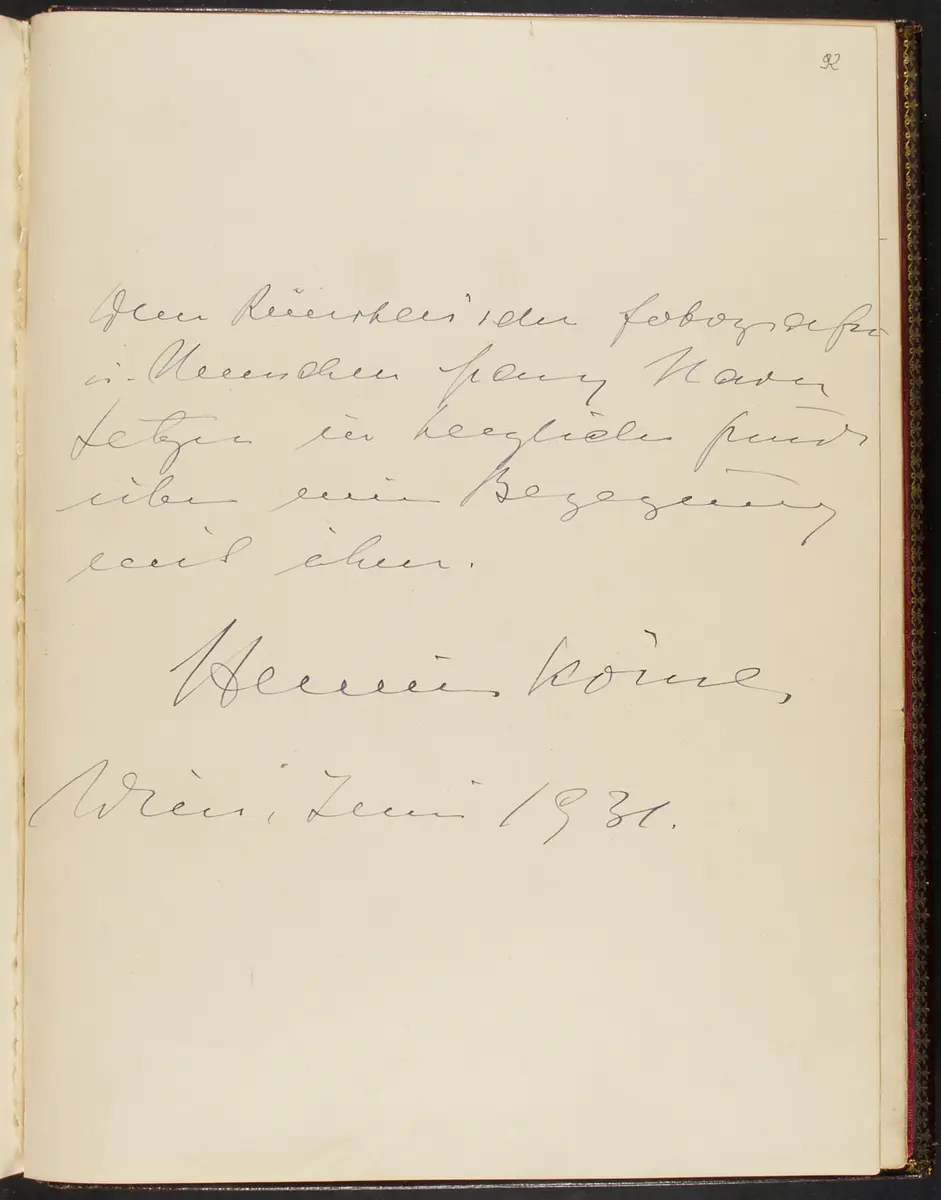 92
Dem Künstlerischen Fotografen
u. Menschen Franz Xaver
Setzer in herzlicher Freude
über eine Begegnung
mit ihm.
Hermine Körner
Wien, Juni 1931.